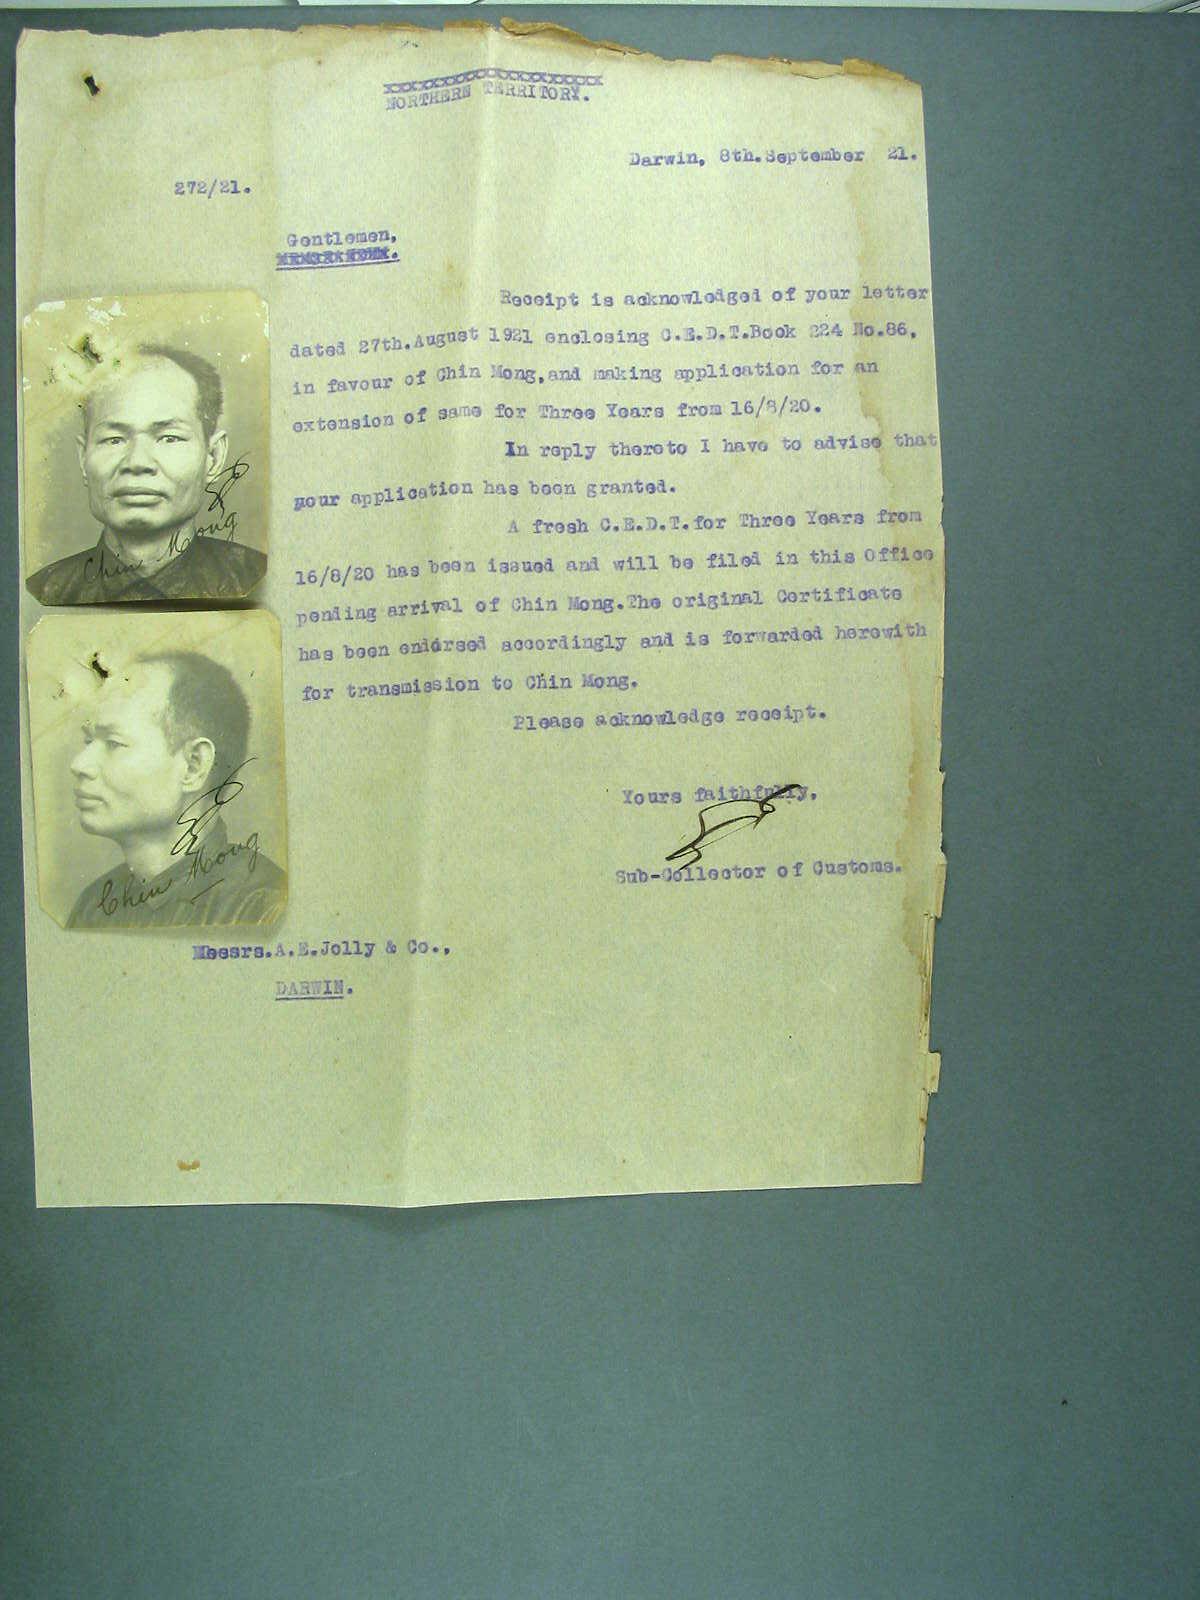 NORTHERN TERRITORY.
Darwin, 8th.September 21.
272/21.
Gentlemen,
Receipt is acknowledged of your letter
dated 27th.August 1921 enclosing C.E.D.T.Book 224 No.86,
in favour of Chin Mong,and making application for an
extension of same for Three Years from 16/8/20.
In reply thereto I have to advise that
your application has been granted.
A fresh C.E.D.T.for Three Years from
16/8/20 has been issued and will be filed in this Office
pending arrival of Chin Mong.The original Certificate
has been endorsed accordingly and is forwarded herewith
for transmission to Chin Mong.
Please acknowledge receipt.
Yours faithfully,
Sub-Collector of Customs.
Messrs.A.E.Jolly & Co.,
DARWIN.
Chin Mong
Chin Mong